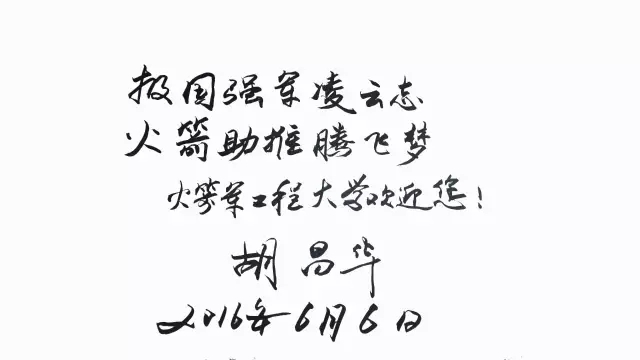 报国强军凌云志
火箭助推腾飞梦
火箭军工程大学欢迎您!
胡昌华
2016年6月6日